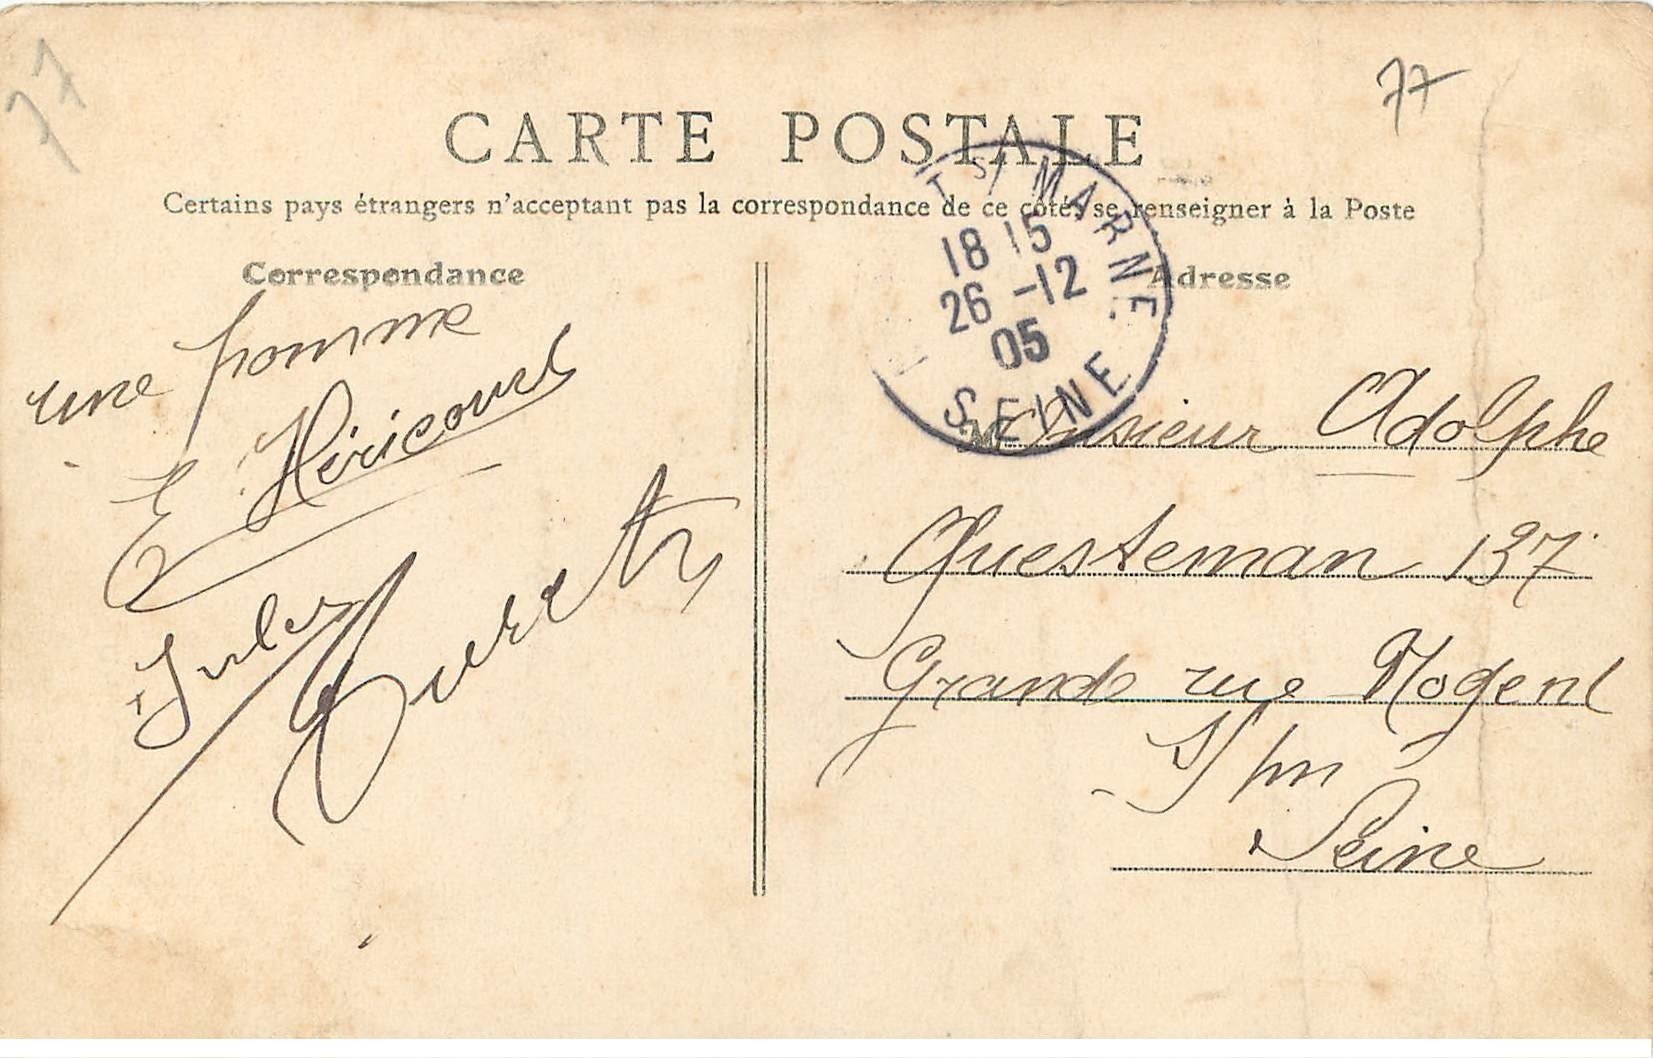 77
77
CARTE POSTALE
Certains pays étrangers n'acceptent pas la correspondance de ce côté, se renseigner à la Poste
Correspondance
Adresse
T S/ MARNE.
18 15
26 -12
05
SEINE
une pomme
E Héricourt
Jules
Monsieur Adolphe
Questeman 137
Grande rue Nogent
S/ m
Seine